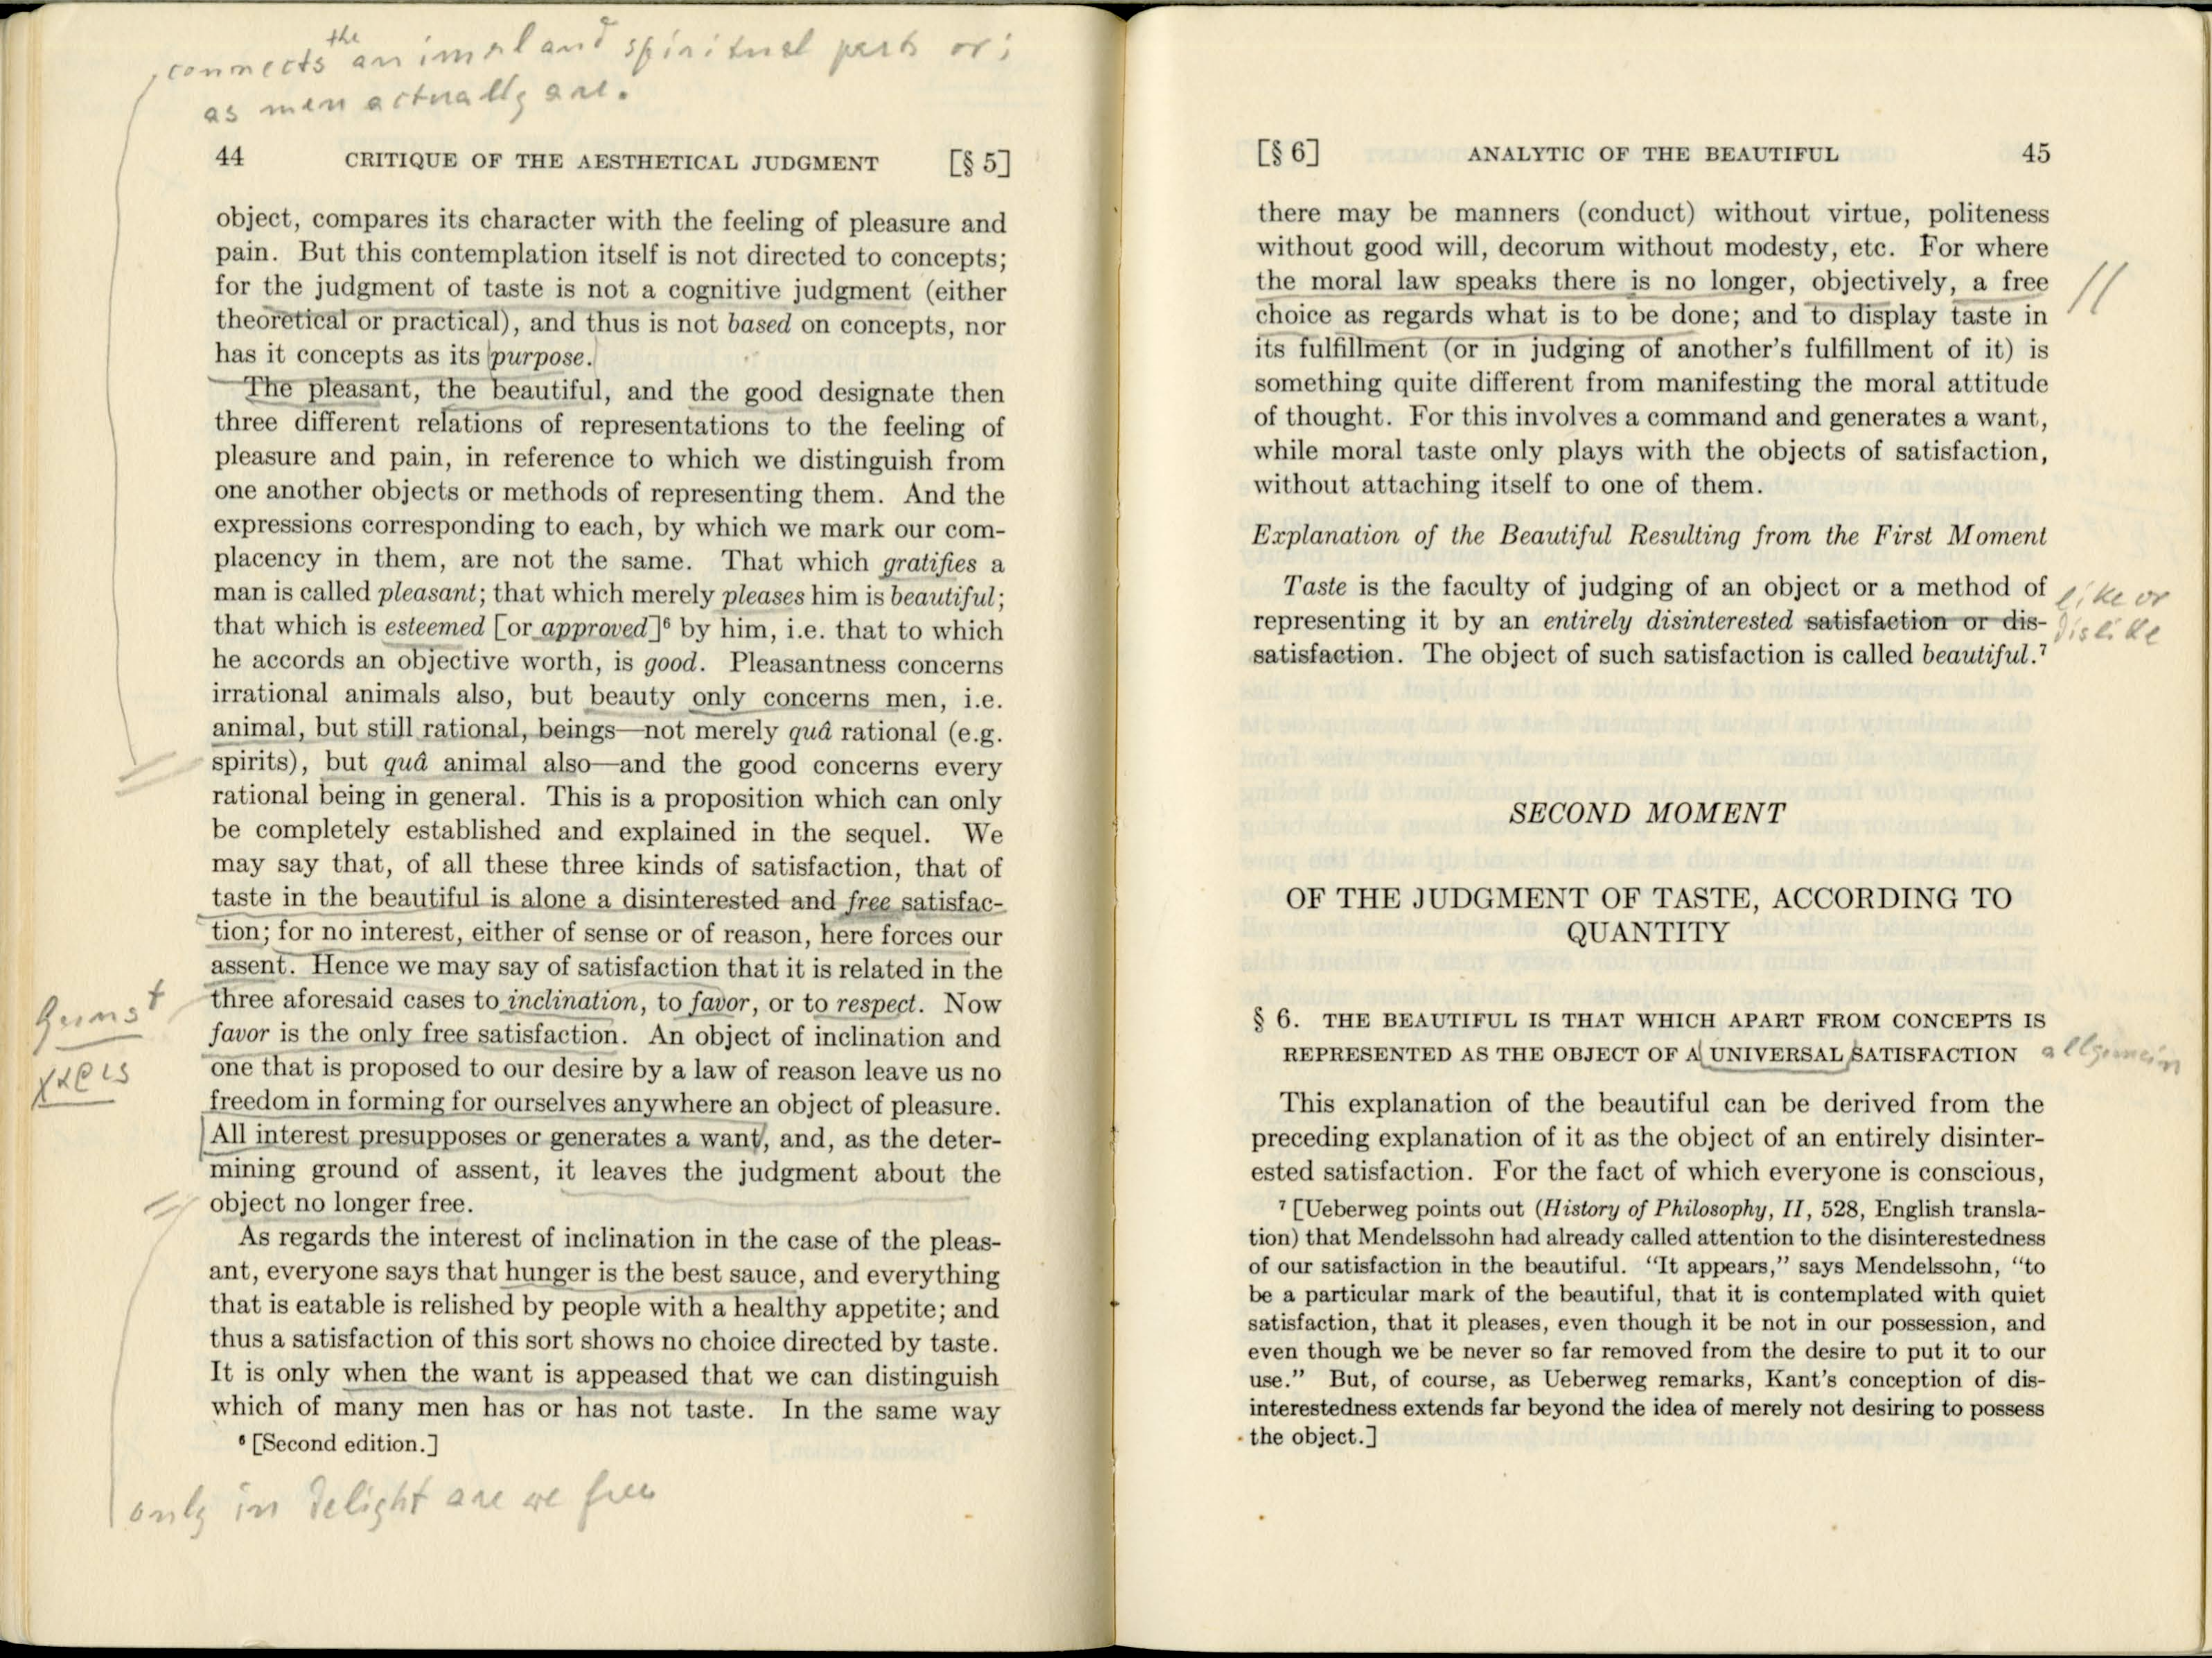 connects the animal and spiritual parts or;
as men actually are.
44 CRITIQUE OF THE AESTHETICAL JUDGMENT [§ 5]
object, compares its character with the feeling of pleasure and
pain. But this contemplation itself is not directed to concepts;
for the judgment of taste is not a cognitive judgment (either
theoretical or practical), and thus is not based on concepts, nor
has it concepts as its purpose.
The pleasant, the beautiful, and the good designate then
three different relations of representations to the feeling of
pleasure and pain, in reference to which we distinguish from
one another objects or methods of representing them. And the
expressions corresponding to each, by which we mark our com-
placency in them, are not the same. That which gratifies a
man is called pleasant; that which merely pleases him is beautiful;
that which is esteemed [or approved]⁶ by him, i.e. that to which
he accords an objective worth, is good. Pleasantness concerns
irrational animals also, but beauty only concerns men, i.e.
animal, but still rational, beings—not merely quâ rational (e.g.
spirits), but quâ animal also—and the good concerns every
rational being in general. This is a proposition which can only
be completely established and explained in the sequel. We
may say that, of all these three kinds of satisfaction, that of
taste in the beautiful is alone a disinterested and free satisfac-
tion; for no interest, either of sense or of reason, here forces our
assent. Hence we may say of satisfaction that it is related in the
three aforesaid cases to inclination, to favor, or to respect. Now
Gunst
favor is the only free satisfaction. An object of inclination and
one that is proposed to our desire by a law of reason leave us no
freedom in forming for ourselves anywhere an object of pleasure.
All interest presupposes or generates a want, and, as the deter-
mining ground of assent, it leaves the judgment about the
object no longer free.
As regards the interest of inclination in the case of the pleas-
ant, everyone says that hunger is the best sauce, and everything
that is eatable is relished by people with a healthy appetite; and
thus a satisfaction of this sort shows no choice directed by taste.
It is only when the want is appeased that we can distinguish
which of many men has or has not taste. In the same way
⁶ [Second edition.]
only in delight are we free
[§ 6] ANALYTIC OF THE BEAUTIFUL 45
there may be manners (conduct) without virtue, politeness
without good will, decorum without modesty, etc. For where
the moral law speaks there is no longer, objectively, a free
choice as regards what is to be done; and to display taste in
its fulfillment (or in judging of another's fulfillment of it) is
something quite different from manifesting the moral attitude
of thought. For this involves a command and generates a want,
while moral taste only plays with the objects of satisfaction,
without attaching itself to one of them.
Explanation of the Beautiful Resulting from the First Moment
Taste is the faculty of judging of an object or a method of
representing it by an entirely disinterested satisfaction or dis-
satisfaction. The object of such satisfaction is called beautiful.⁷
like or
dislike
SECOND MOMENT
OF THE JUDGMENT OF TASTE, ACCORDING TO
QUANTITY
§ 6. THE BEAUTIFUL IS THAT WHICH APART FROM CONCEPTS IS
REPRESENTED AS THE OBJECT OF A UNIVERSAL SATISFACTION
allgemein
This explanation of the beautiful can be derived from the
preceding explanation of it as the object of an entirely disinter-
ested satisfaction. For the fact of which everyone is conscious,
⁷ [Ueberweg points out (History of Philosophy, II, 528, English transla-
tion) that Mendelssohn had already called attention to the disinterestedness
of our satisfaction in the beautiful. "It appears," says Mendelssohn, "to
be a particular mark of the beautiful, that it is contemplated with quiet
satisfaction, that it pleases, even though it be not in our possession, and
even though we be never so far removed from the desire to put it to our
use." But, of course, as Ueberweg remarks, Kant's conception of dis-
interestedness extends far beyond the idea of merely not desiring to possess
the object.]